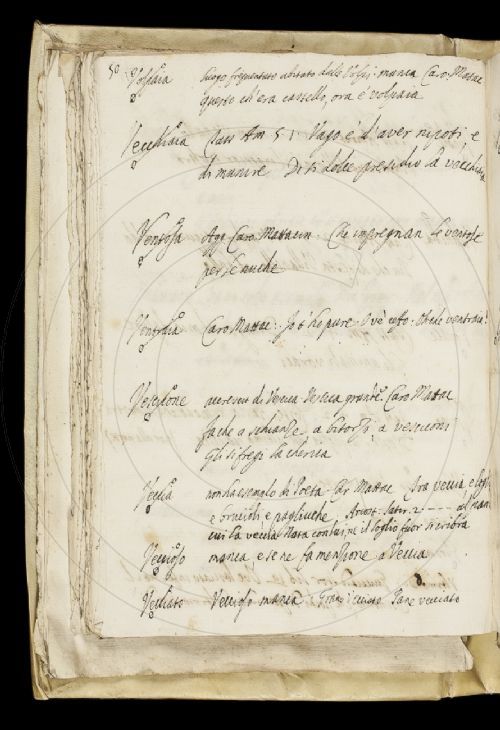 50
Volpaia luogo frequentato abitato dalle Volpi. manca Caro. Mattac
questo ch'era castello, ora è volpaia
Vecchiaia Tass Am 5 1 Vago è d'aver nipoti e
di munire Di sì dolce presidio la vecchiaia
Ventosa Agg Caro. Mattacin. Che impregnan le ventose
per le nuche
Ventraia Caro Mattac. Io t'ho pure. O ve' ceffo. Oh che ventraia!
Vescicone accresc. di Vescica Vescica grande. Caro Mattac
fa che a schianze, a bitorzi, a vesciconi
gli si freghi la cherica
Veccia non ha esemplo di Poeta. Car Mattac Ora veccia, e
e bruscioli, e pagliuche, Ariost. Satir. 2
cui la veccia, il loglio fuor si cribra
Veccioso manca, e se ne fa menzione a Veccia
Vecciato Veccioso manca. Pane vecciato